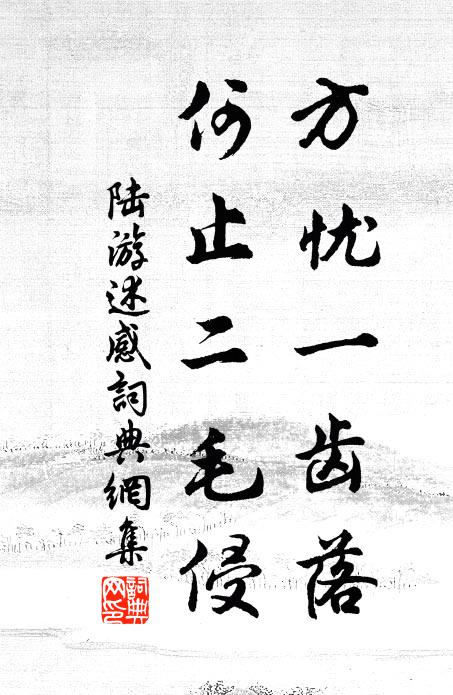 方忧一齿落
何止二毛侵
陆游述感詞典網集
詞典网印